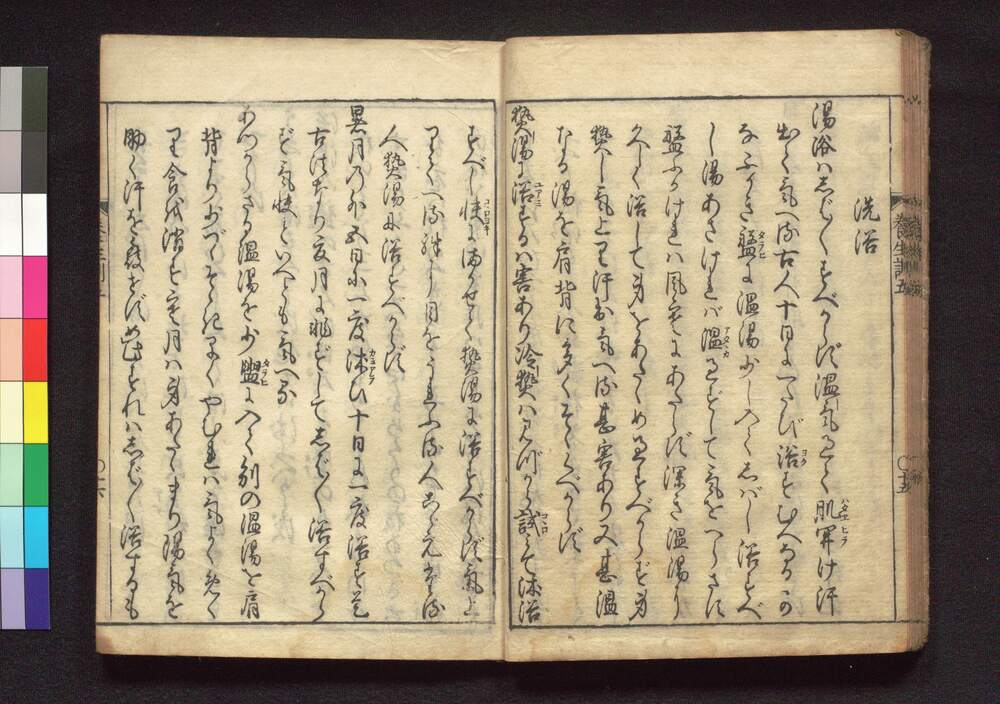 洗浴
湯浴ハしば〳〵すべからず温気過て肌開け汗
出て気へる古人十日に一たび浴すむべなるか
なふかき盤に温湯少し入てしバし浴すべ
し湯あさけれバ温過ずして気をへらさず
盤ふかけれハ風寒にあたらず深き温湯に
久しく浴して身をあたゝめ過すべからず身
熱し気上り汗出気へる甚害あり又甚温
なる湯を肩背に多くそゝぐべからず
熱湯に浴するハ害あり冷熱ハみづから試て沐浴
すべし快にまかせて熱湯に浴すべからず気上
りてへる殊に目をうれふる人こゞえたる
人熱湯に浴すべからず
暑月の外五日に一度沐ひ十日に一度浴す是
古法なり夏月に非ずしてしば〳〵浴すべから
ず気快といへども気へる
あつからざる温湯を少盥に入て別の温湯を肩
背より少づゝそゝぎ早くやむれハ気よくめぐ
り食を消す寒月ハ身あたゝまり陽気を
助く汗を発せず如此すれハしば〳〵浴するも
養生訓五
〇十五
〇十六